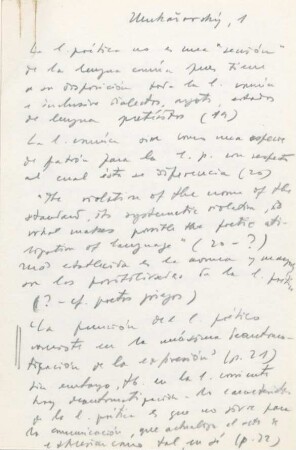 Mukařovský, 1
La l. poética no es una "sección"
de la lengua común pues tiene
a su disposición toda la l. común
e inclusive dialectos, argots, estados
de lengua pretéritos (19)
La l. común sirve como una especie
de patrón para la l. p. con respecto
al cual ésta se diferencia (20)
"The violation of the norm of the
standard, its systematic violation, is
what makes possible the poetic uti-
lization of language" (20 - ?)
más establecida es la norma y mayores
son las posibilidades de la l. poética
(? - cf. poetas griegos)
"La función de l. poético
consiste en la máxima desautoma-
tización de la expresión" (p. 21)
Sin embargo, tb. en la l. corriente
hay desautomatización - La característica
de la l. poética es que no sirve para
la comunicación, que actualiza el acto de
expresión como tal, en sí (p. 22)